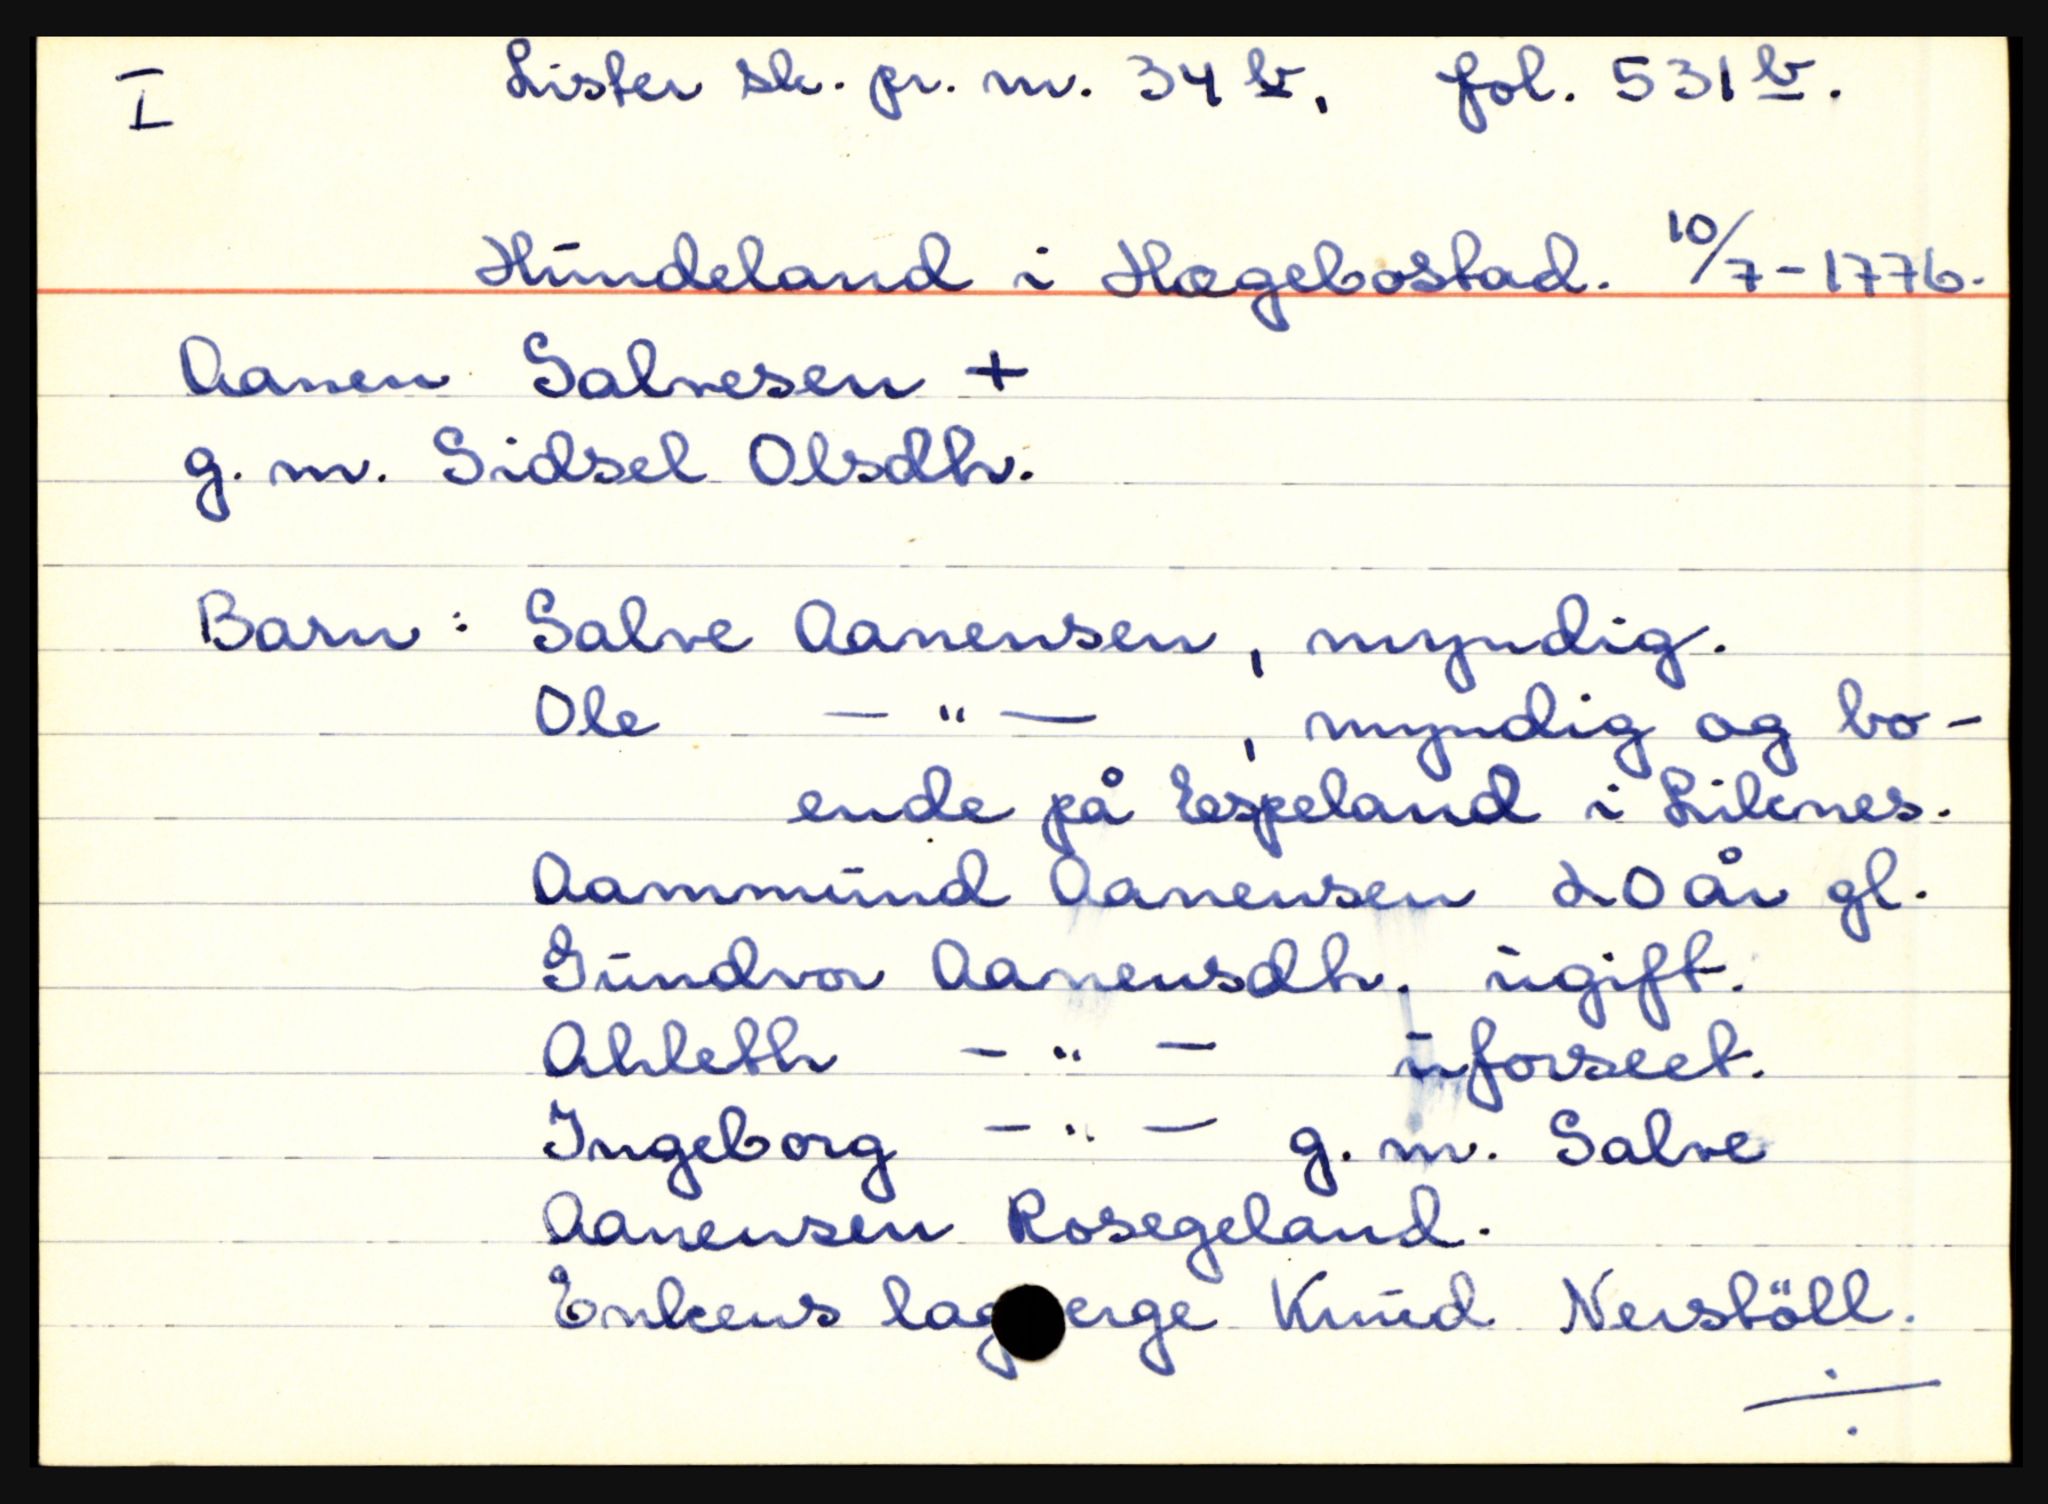 I
Lister sk. pr. nr. 34 b, fol. 531 b.
Hundeland i Hægebostad. 10/7-1776.
Aanen Salvesen +
g. m. Sidsel Olsdtr.
Barn: Salve Aanensen, myndig.
Ole — " — , myndig og bo-
ende på Espeland i Liknes.
Aammund Aanensen 20 år gl.
Gundvor Aanensdtr. ugift.
Ahleth — " — uforseet.
Ingeborg — " — g. m. Salve
Aanensen Rosegeland.
Enkens lag erge Knud Nerstöll.
÷